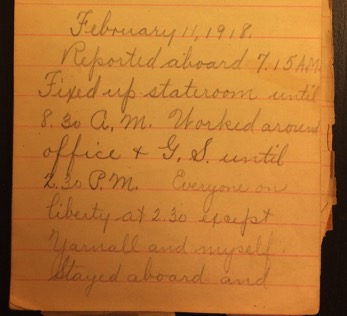 February 11, 1918.
Reported aboard 7.15 A.M.
Fixed up stateroom until
8.30 A.M. Worked around
office + G.S. until
2.30 P.M. Everyone on
liberty at 2.30 except
Yarnall and myself.
Stayed aboard and